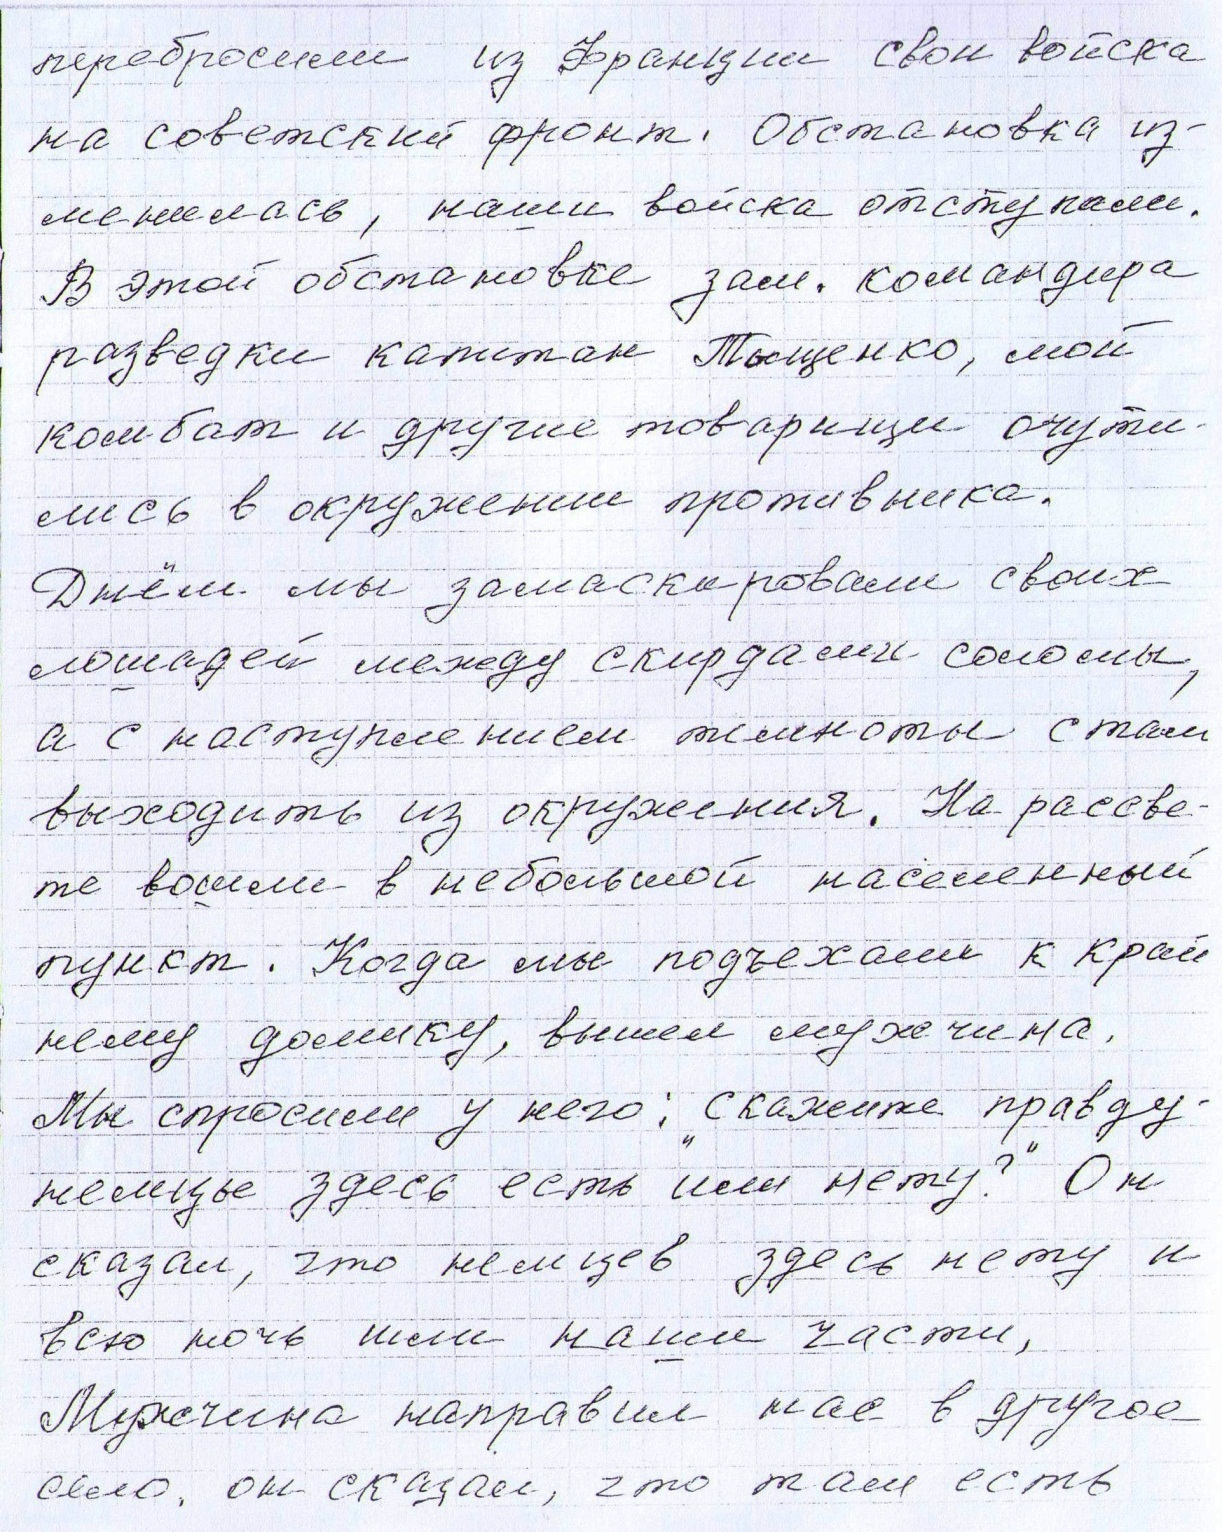 перебросили из Франции свои войска
на советский фронт. Обстановка из-
менилась, наши войска отступали.
В этой обстановке зам. командира
разведки капитан Тыщенко, мой
комбат и другие товарищи очути-
лись в окружении противника.
Днём мы замаскировали своих
лошадей между скирдами соломы,
а с наступлением темноты стали
выходить из окружения. На рассве-
те вошли в небольшой населенный
пункт. Когда мы подъехали к край
нему домику, вышел мужчина.
Мы спросили у него: „Скажите правду-
немцы здесь есть или нету?" Он
сказал, что немцев здесь нету и
всю ночь шли наши части,
Мужчина направил нас в другое
село. он сказал, что там есть